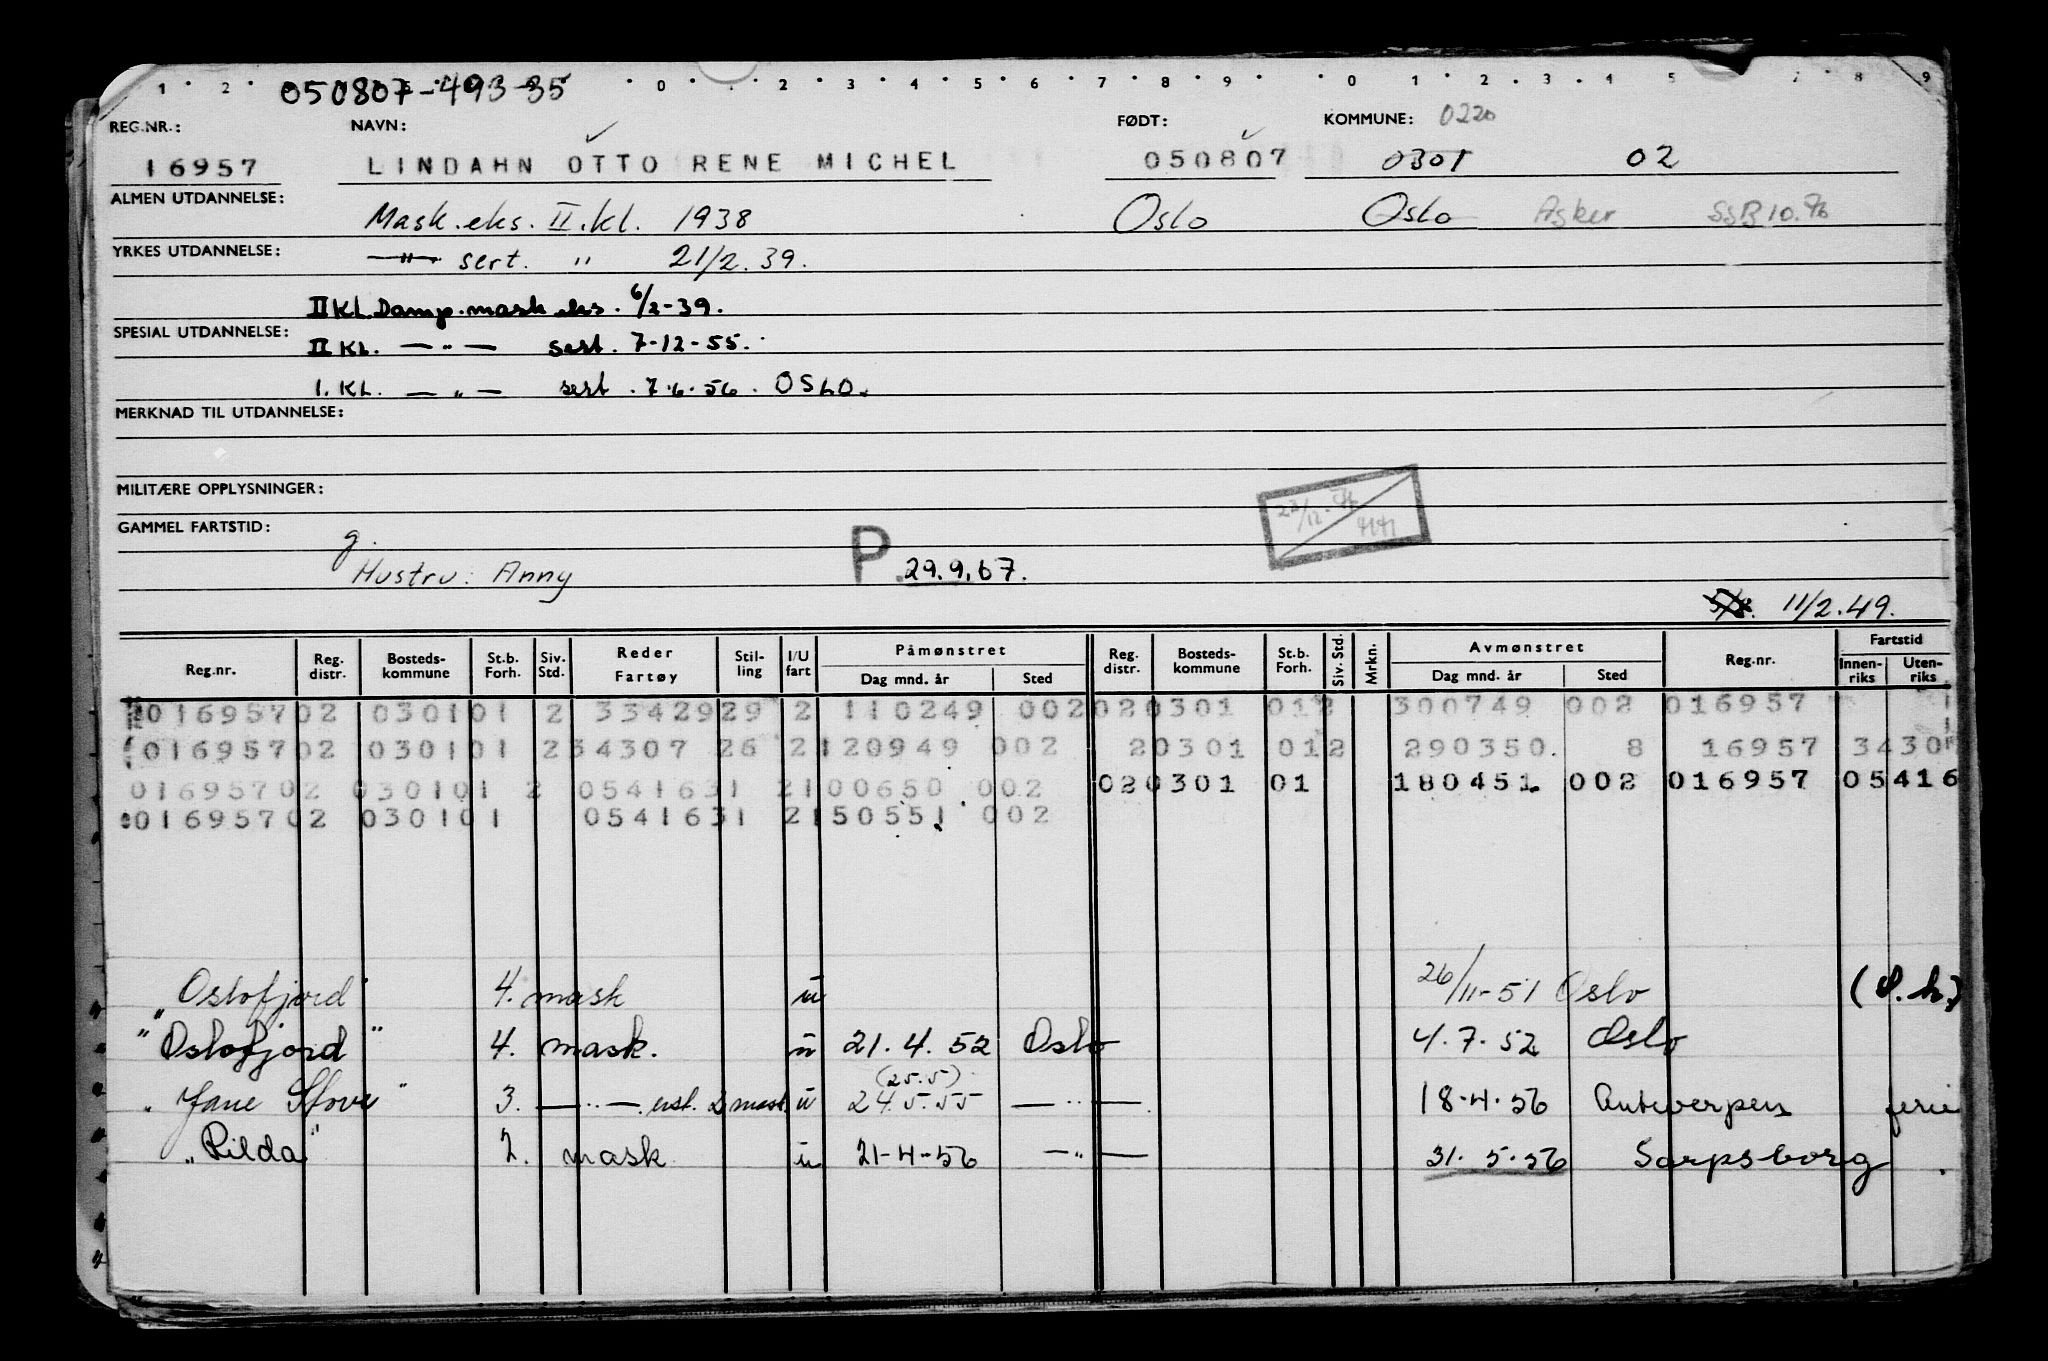 1 2 050807-493-35 0 1 2 3 4 5 6 7 8 9 0 1 2 3 4 5 7 8 9
REG.NR.: NAVN: FØDT: KOMMUNE: 0220
16957 LINDAHN OTTO RENE MICHEL 050807 0301 02
ALMEN UTDANNELSE: Mask.eks. II.kl. 1938 Oslo Oslo Asker SSB 10.76
YRKES UTDANNELSE: —"— sert. " 21/2.39.
II KL. Damp.mask.eks. 6/2-39.
SPESIAL UTDANNELSE:
II KL. — " — sert. 7-12-55.
1. KL. — " — sert. 7.6.56. OSLO.
MERKNAD TIL UTDANNELSE:
MILITÆRE OPPLYSNINGER:
GAMMEL FARTSTID:
g.
Hustru: Anny P. 29.9.67.
11/2.49.
Reg.nr. Reg. distr. Bosteds-kommune St.b. Forh. Siv. Std. Reder Fartøy Stil-ling I/U fart Påmønstret Dag mnd. år Sted Reg. distr. Bosteds-kommune St.b. Forh. Siv. Std. Mrkn. Avmønstret Dag mnd. år Sted Reg.nr. Fartstid Innen-riks Uten-riks
016957 02 0301 01 2 33429 29 2 110249 002 02 0301 01 2 300749 002 016957
016957 02 0301 01 2 34307 26 2 120949 002 2 0301 01 2 290350. 8 16957 3430
016957 02 0301 01 2 05416 31 2 100650 002 02 0301 01 180451. 002 016957 05416
016957 02 0301 01 05416 31 2 150551 002
"Oslofjord" 4. mask ū 26/11-51 Oslo
"Oslofjord" 4. mask. ū 21.4.52 Oslo 4.7.52 Oslo
(25.5)
"Jane Stove" 3. — " —. 2 mask. ū 24.5.55 — " —. 18-4-56 Antwerpen ferie
"Rilda" 2. mask ū 21-4-56 — " — 31.5.56 Sarpsborg.